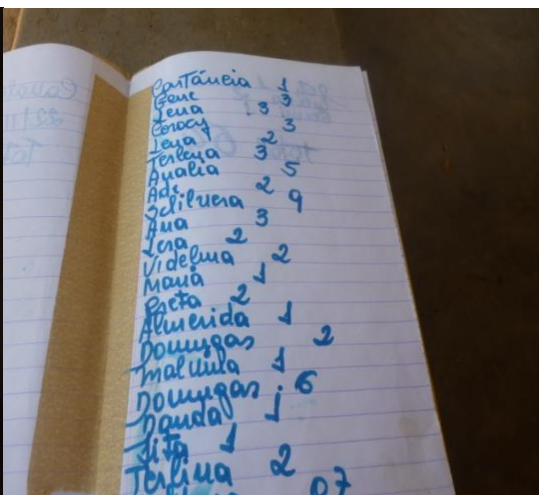 Constância 1
Gene 3
Lena 3
Coracy 3
Lena 2
Terleya 3
Analia 5
Ade 2
Sdilvera 9
Ana 3
Lera 2
Videlma 2
Maná 1
Preta 2
Almerida 1
Domingas 2
Malvina 1
Domingas 6
Danda 1
Sita 1
Terlina 2
07